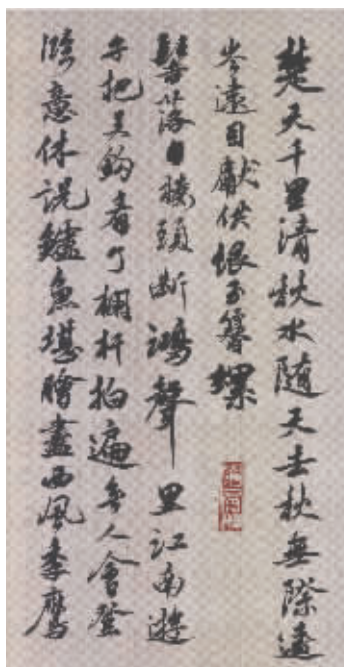 楚天千里清秋水随天去秋無際遥
岑遠目獻供恨玉簪螺
髻落日樓頭斷鴻聲里江南遊
子把吴鈎看了欄杆拍遍無人會登
臨意休説鱸魚堪膾盡西風季鷹